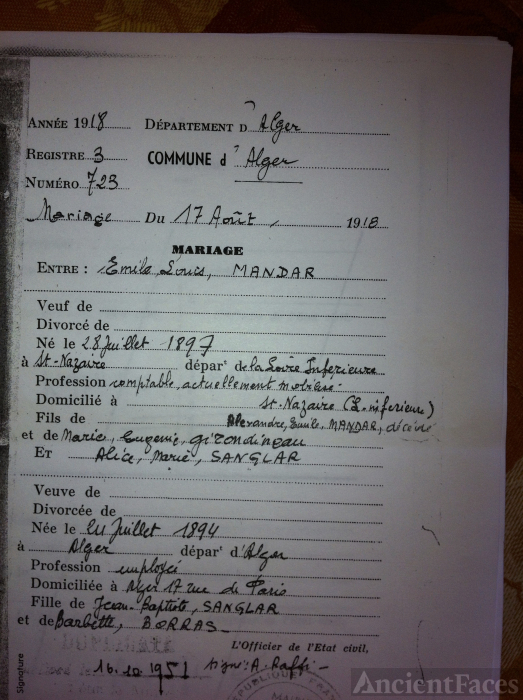 ANNÉE 1918 DÉPARTEMENT D'Alger
REGISTRE 3 COMMUNE d'Alger
NUMÉRO 723
Mariage DU 17 Août 1918
MARIAGE
ENTRE : Emile, Louis, MANDAR
Veuf de
Divorcé de
Né le 28 Juillet 1897
à St-Nazaire dépar't de la Loire Inferieure
Profession comptable, actuellement
Domicilié à St-Nazaire (L. inferieure)
Fils de Alexandre, Emile, MANDAR, décédé
et de Marie, Eugenie, girondineau
ET Alice, Marie, SANGLAR
Veuve de
Divorcée de
Née le Juillet 1894
à Alger dépar't d'Alger
Profession employée
Domiciliée à Alger 17 rue de Paris
Fille de Jean-Baptiste, SANGLAR
et de Barbette, BORRAS
L'Officier de l'Etat civil,
16.10.1951 signé: A. Raffi
Signature
REPUBLIQUE
AncientFaces